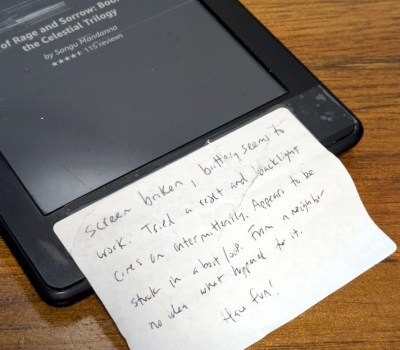 of Rage and Sorrow: Boo
the Celestial Trilogy
by Sangu Mandanna
115 reviews
screen broken, battery seems to
work. Tried a reset and backlight
comes on intermittently. Appears to be
stuck in a boot loop. From a neighbor
no idea what happened to it.
Have fun!